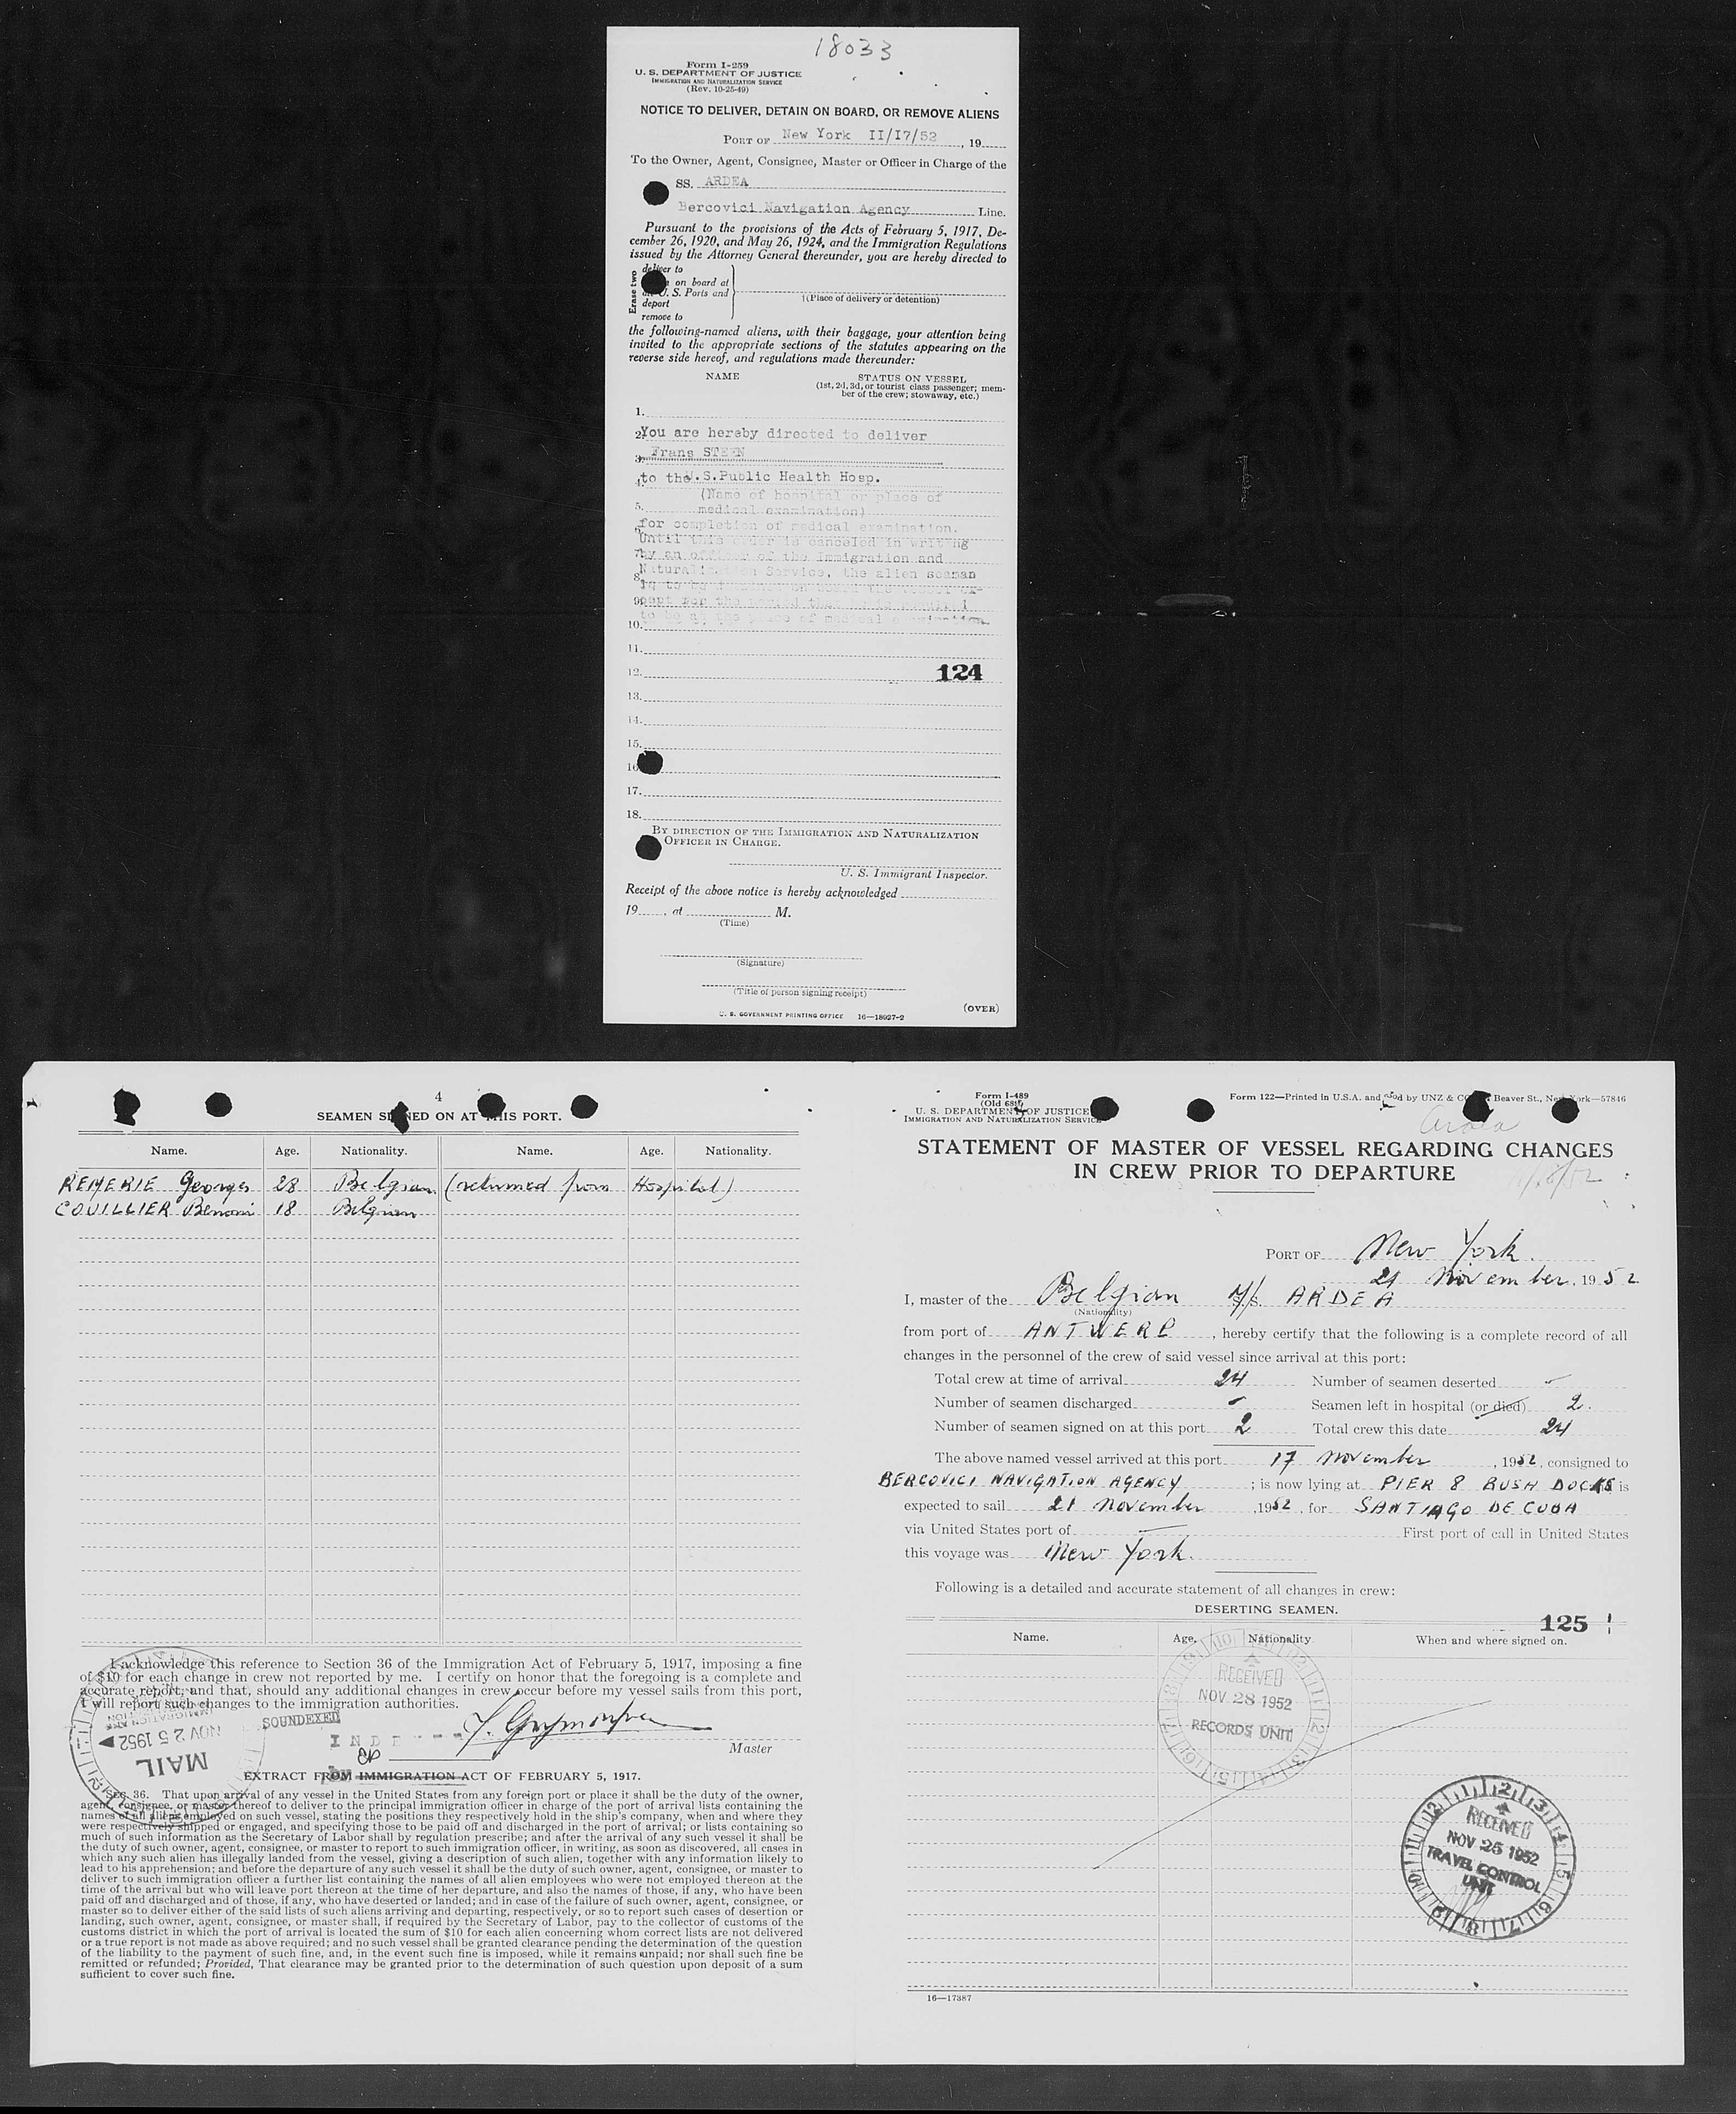 18033
Form I-259
U. S. DEPARTMENT OF JUSTICE
IMMIGRATION AND NATURALIZATION SERVICE
(Rev. 10-25-49)
NOTICE TO DELIVER, DETAIN ON BOARD, OR REMOVE ALIENS
PORT OF New York II/I7/52, 19
To the Owner, Agent, Consignee, Master or Officer in Charge of the
SS. ARDEA
Bercovici Navigation Agency Line.
Pursuant to the provisions of the Acts of February 5, 1917, De-
cember 26, 1920, and May 26, 1924, and the Immigration Regulations
issued by the Attorney General thereunder, you are hereby directed to
Erase two
deliver to
on board at
U. S. Ports and
deport
remove to
(Place of delivery or detention)
the following-named aliens, with their baggage, your attention being
invited to the appropriate sections of the statutes appearing on the
reverse side hereof, and regulations made thereunder:
NAME STATUS ON VESSEL
(1st, 2d, 3d, or tourist class passenger; mem-
ber of the crew; stowaway, etc.)
1.
2. You are hereby directed to deliver
3. Frans STEEN
4. to the U.S.Public Health Hosp.
(Name of hospital or place of
5. medical examination)
6. for completion of medical examination.
Until this order is canceled in writing
7. by an officer of the Immigration and
8. Naturalization Service, the alien seaman
is to be detained on board the vessel ex-
9. cept for the period
to be at the place of medical examination.
10.
11.
12. 124
13.
14.
15.
16
17.
18.
BY DIRECTION OF THE IMMIGRATION AND NATURALIZATION
OFFICER IN CHARGE.
U. S. Immigrant Inspector.
Receipt of the above notice is hereby acknowledged
19, at M.
(Time)
(Signature)
(Title of person signing receipt)
(OVER)
U. S. GOVERNMENT PRINTING OFFICE 16—18927-2
4
SEAMEN SIGNED ON AT THIS PORT.
Name. Age. Nationality. Name. Age. Nationality.
REMERIE Georges 28 Belgian (returned from Hospital)
COUILLIER Benoni 18 Belgian
I acknowledge this reference to Section 36 of the Immigration Act of February 5, 1917, imposing a fine
of $10 for each change in crew not reported by me. I certify on honor that the foregoing is a complete and
accurate report, and that, should any additional changes in crew occur before my vessel sails from this port,
I will report such changes to the immigration authorities.
SOUNDEXED
NOV 25 1952
MAIL
Master
EXTRACT FROM IMMIGRATION ACT OF FEBRUARY 5, 1917.
SEC. 36. That upon arrival of any vessel in the United States from any foreign port or place it shall be the duty of the owner,
agent, consignee, or master thereof to deliver to the principal immigration officer in charge of the port of arrival lists containing the
names of all aliens employed on such vessel, stating the positions they respectively hold in the ship's company, when and where they
were respectively shipped or engaged, and specifying those to be paid off and discharged in the port of arrival; or lists containing so
much of such information as the Secretary of Labor shall by regulation prescribe; and after the arrival of any such vessel it shall be
the duty of such owner, agent, consignee, or master to report to such immigration officer, in writing, as soon as discovered, all cases in
which any such alien has illegally landed from the vessel, giving a description of such alien, together with any information likely to
lead to his apprehension; and before the departure of any such vessel it shall be the duty of such owner, agent, consignee, or master to
deliver to such immigration officer a further list containing the names of all alien employees who were not employed thereon at the
time of the arrival but who will leave port thereon at the time of her departure, and also the names of those, if any, who have been
paid off and discharged and of those, if any, who have deserted or landed; and in case of the failure of such owner, agent, consignee, or
master so to deliver either of the said lists of such aliens arriving and departing, respectively, or so to report such cases of desertion or
landing, such owner, agent, consignee, or master shall, if required by the Secretary of Labor, pay to the collector of customs of the
customs district in which the port of arrival is located the sum of $10 for each alien concerning whom correct lists are not delivered
or a true report is not made as above required; and no such vessel shall be granted clearance pending the determination of the question
of the liability to the payment of such fine, and, in the event such fine is imposed, while it remains unpaid; nor shall such fine be
remitted or refunded; Provided, That clearance may be granted prior to the determination of such question upon deposit of a sum
sufficient to cover such fine.
Form I-489
(Old 689)
U. S. DEPARTMENT OF JUSTICE
IMMIGRATION AND NATURALIZATION SERVICE
Form 122—Printed in U.S.A. and Sold by UNZ & CO., Beaver St., New York—57846
STATEMENT OF MASTER OF VESSEL REGARDING CHANGES
IN CREW PRIOR TO DEPARTURE
PORT OF New York.
21 November, 1952
I, master of the Belgian M/S. ARDEA
(Nationality)
from port of ANTWERP, hereby certify that the following is a complete record of all
changes in the personnel of the crew of said vessel since arrival at this port:
Total crew at time of arrival 24 Number of seamen deserted -
Number of seamen discharged - Seamen left in hospital (or died) 2.
Number of seamen signed on at this port 2 Total crew this date 24
The above named vessel arrived at this port 17 November, 1952, consigned to
BERCOVICI NAVIGATION AGENCY; is now lying at PIER 8 BUSH DOCKS is
expected to sail 21 November, 1952, for SANTIAGO DE CUBA
via United States port of — First port of call in United States
this voyage was New York.
Following is a detailed and accurate statement of all changes in crew:
DESERTING SEAMEN.
125
Name. Age. Nationality When and where signed on.
RECEIVED
NOV 28 1952
RECORDS UNIT
RECEIVED
NOV 25 1952
TRAVEL CONTROL
UNIT
16—17387